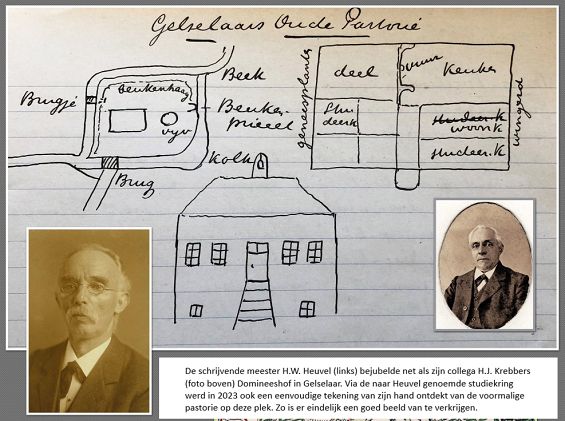 Gelselaars Oude Pastorië
Beek
Beukenhaag
Brugje
Beuken-
prieel
vyv
Kolk
Brug
geneesplanten
deel
vuur
Keuken
wijngerd
Stu
deerk
Studeer.K
woonk
Studeer.K
De schrijvende meester H.W. Heuvel (links) bejubelde net als zijn collega H.J. Krebbers
(foto boven) Domineeshof in Gelselaar. Via de naar Heuvel genoemde studiekring
werd in 2023 ook een eenvoudige tekening van zijn hand ontdekt van de voormalige
pastorie op deze plek. Zo is er eindelijk een goed beeld van te verkrijgen.